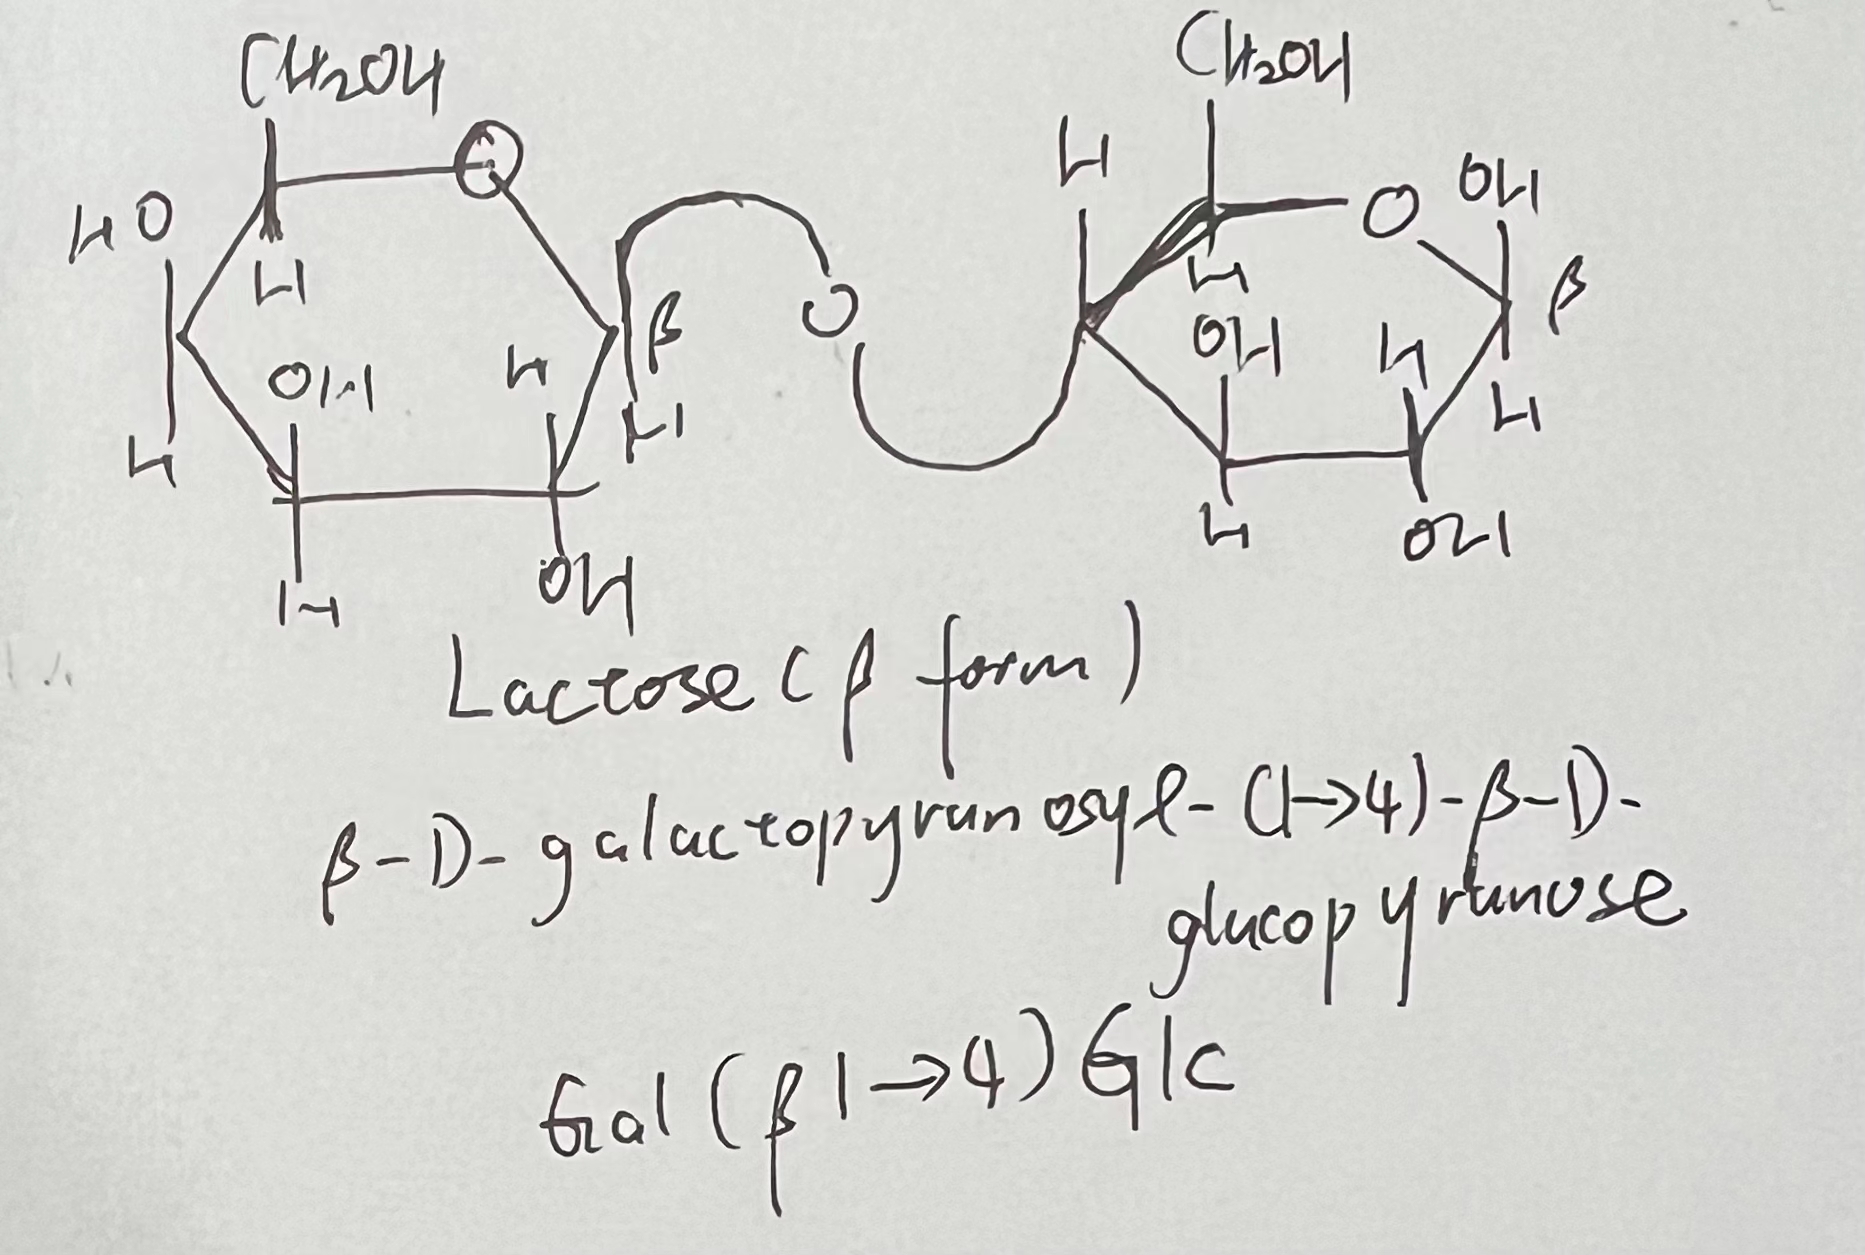 CH₂OH CH₂OH
H OH
HO O O
H H β
OH H β O OH H
H H H
H OH H OH
Lactose (β form)
β-D-galactopyranosyl-(1→4)-β-D-
glucopyranose
Gal (β1→4) Glc